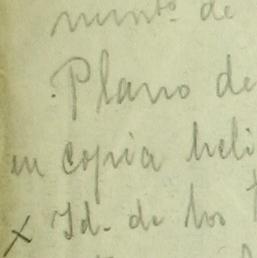 de
Plano de
en copia heli
x Id. de los